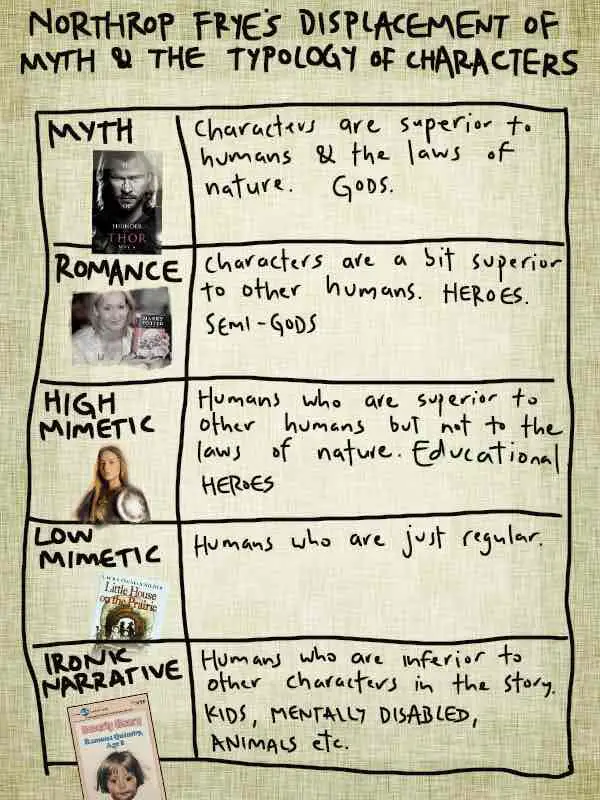 NORTHROP FRYE'S DISPLACEMENT OF
MYTH & THE TYPOLOGY OF CHARACTERS
MYTH
Characters are superior to
humans & the laws of
nature. GODS.
THUNDER
THOR
ROMANCE
Characters are a bit superior
to other humans. HEROES.
SEMI-GODS
HARRY
POTTER
HIGH
MIMETIC
Humans who are superior to
other humans but not to the
laws of nature. Educational
HEROES
LOW
MIMETIC
Humans who are just regular.
LAURA INGALLS WILDER
Little House
on the Prairie
IRONIC
NARRATIVE
Humans who are inferior to
other characters in the story.
KIDS, MENTALLY DISABLED,
ANIMALS etc.
Beverly Cleary
Ramona Quimby,
Age 8